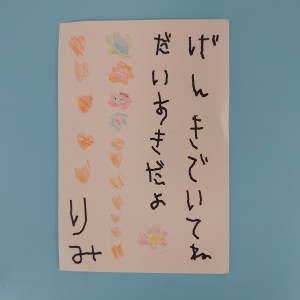 げんきでいてね
だいすきだよ
りみ